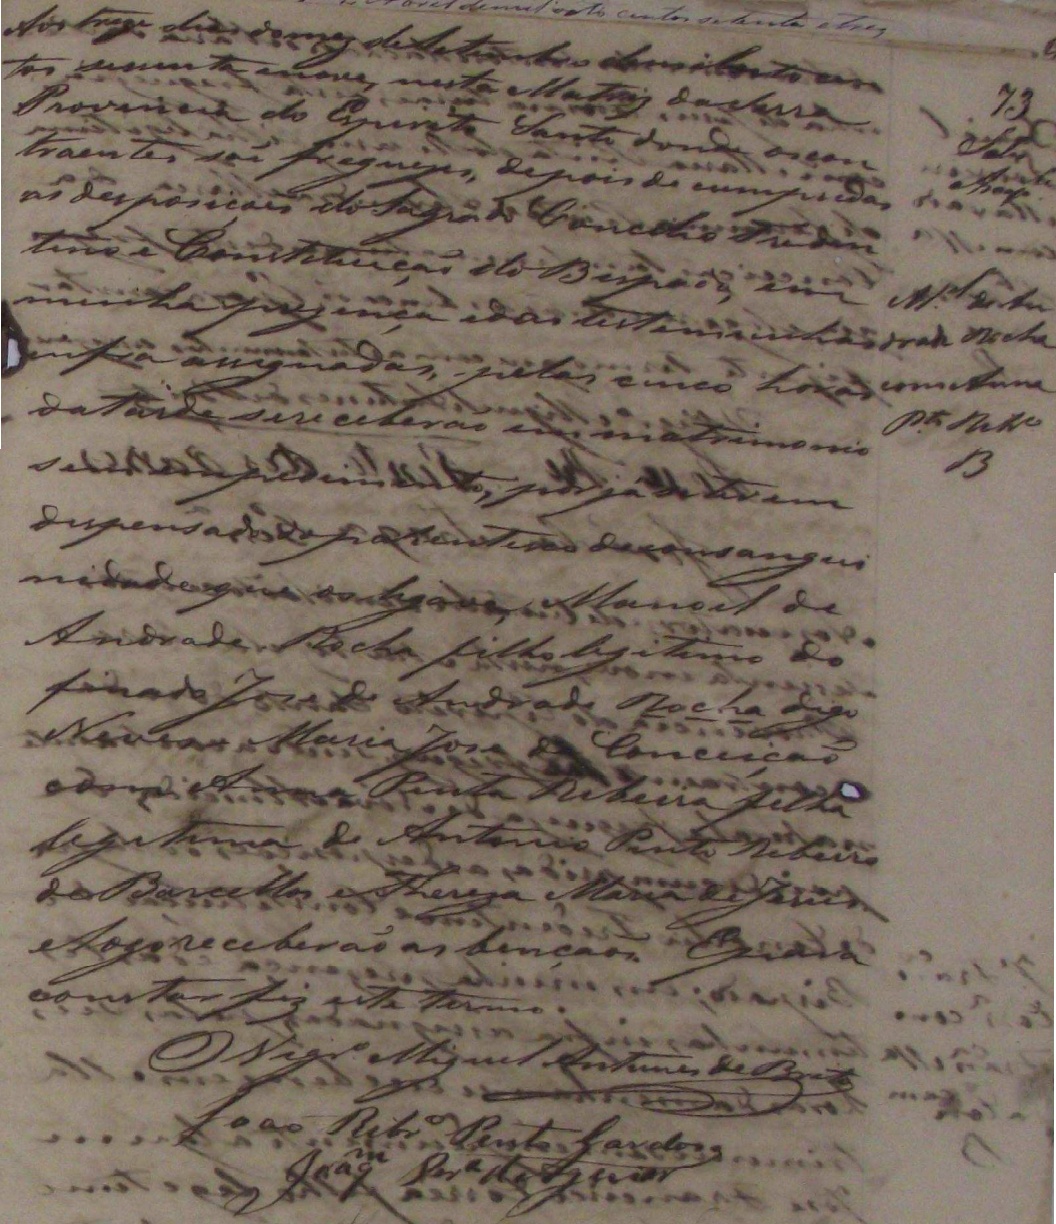 de mil oito centos setenta e tres
Aos treze dias do mez de Setembro de mil oito cen
tos secenta e nove, nesta Matriz da Serra
Provincia do Espirito Santo donde os con
traentes são freguezes, depois de cumpridas
as desposiçoes do Sagrado Concilio Triden
tino e Constituição do Bispado, em
minha prezença e das testemunhas
infra assignadas, pelas cinco horas
da tarde se receberão em matrimonio
sem impedimento, por já se terem
dispensado do parentesco de consangui
nidade que os ligava, Manoel de
Andrade Rocha filho legitimo do
finado José de Andrade Rocha digo
Neves e Maria Jose da Conceição
com D. Anna Pinta Ribeira filha
legitima de Antonio Pinto Ribeiro
de Barcellos e Thereza Maria de Jesus
e logo receberão as bençãos. E para
constar fiz este termo.
O Vigrº Miguel Antunes de Brito
João Ribrº Pinto Cardoso
Joaqm Perª de Aguiar
73
Mel de An
drade Rocha
com Anna
Pta Ribrº
B